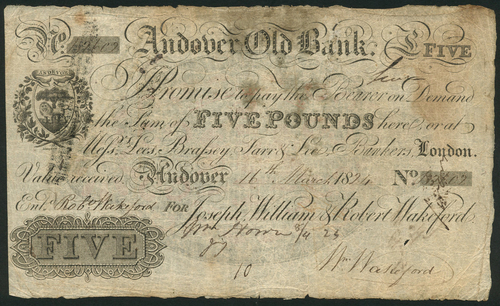 No.
Andover Old Bank. £ FIVE
ANDOVER
I Promise to pay the Bearer on Demand
the Sum of FIVE POUNDS here, or at
Messrs. Lees, Brassey, Farr & Lee Bankers, London.
Value received Andover 16th March 1824 No.
Entd. Robt. Wakeford FOR Joseph, William & Robert Wakeford.
FIVE
10
Wm Wakeford